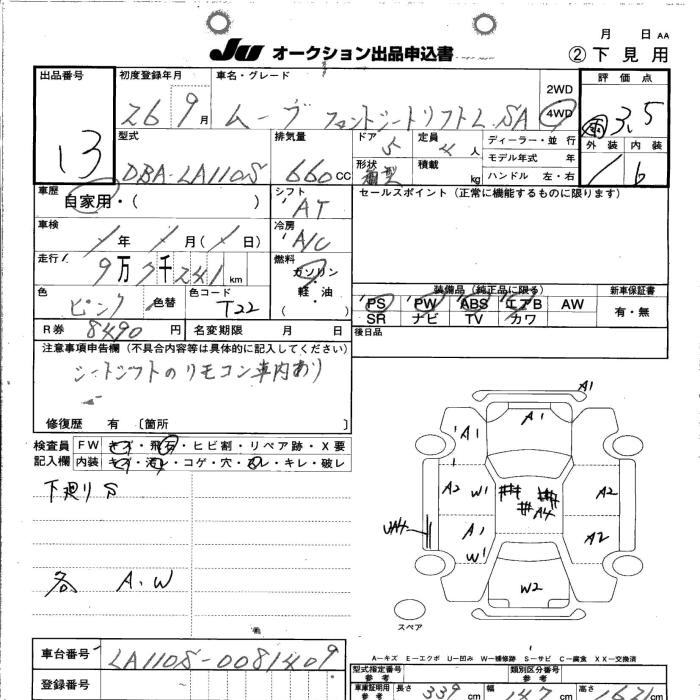 月 日 AA
JU オークション出品申込書 ②下見用
出品番号 初度登録年月 車名・グレード 2WD 評価点
13 26 9月 ムーヴ フロントシートリフトL SA 4WD 3.5
型式 排気量 ドア 5 定員 4人 ディーラー・並行 外装 内装
DBA-LA110S 660CC 形状 箱型 積載 kg モデル年式 年
ハンドル 左・右
車歴 自家用・( ) シフト AT セールスポイント(正常に機能するものに限ります)
車検 / 年 / 月(/ 日) 冷房 A/C
走行 9万7千241km 燃料 ガソリン
軽・油
( )
色 ピンク 色替 色コード T22
装備品(純正品に限る) 新車保証書
PS PW ABS エアB AW 有・無
SR ナビ TV カワ
R券 8490円 名変期限 月 日 後日品
注意事項申告欄(不具合内容等は具体的に記入してください)
シートシフトのリモコン車内あり
修復歴 有〔箇所 〕
検査員 FW キズ・飛石・ヒビ割・リペア跡・X要
記入欄 内装 キズ・汚レ・コゲ・穴・スレ・キレ・破レ
下廻りS
各 A.W
A1
A1
A1
A2 W1 A4 A2
UA4 A1 A2
W1
W2
スペア
A−キズ E−エクボ U−凹み W−補修跡 S−サビ C−腐食 XX−交換済
車台番号 LA110S-0081409
登録番号
型式指定番号 参考 類別区分番号 参考
車庫証明用 参考 長さ 339cm 幅 147cm 高さ